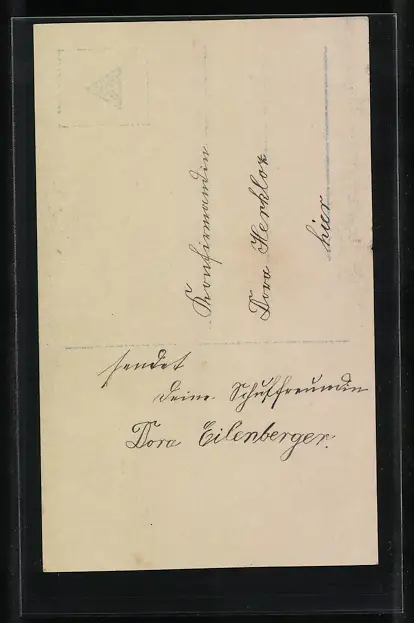 Konfirmandin
Dora Herklotz
hier
sendet
deine Schulfreundin
Dora Eilenberger.